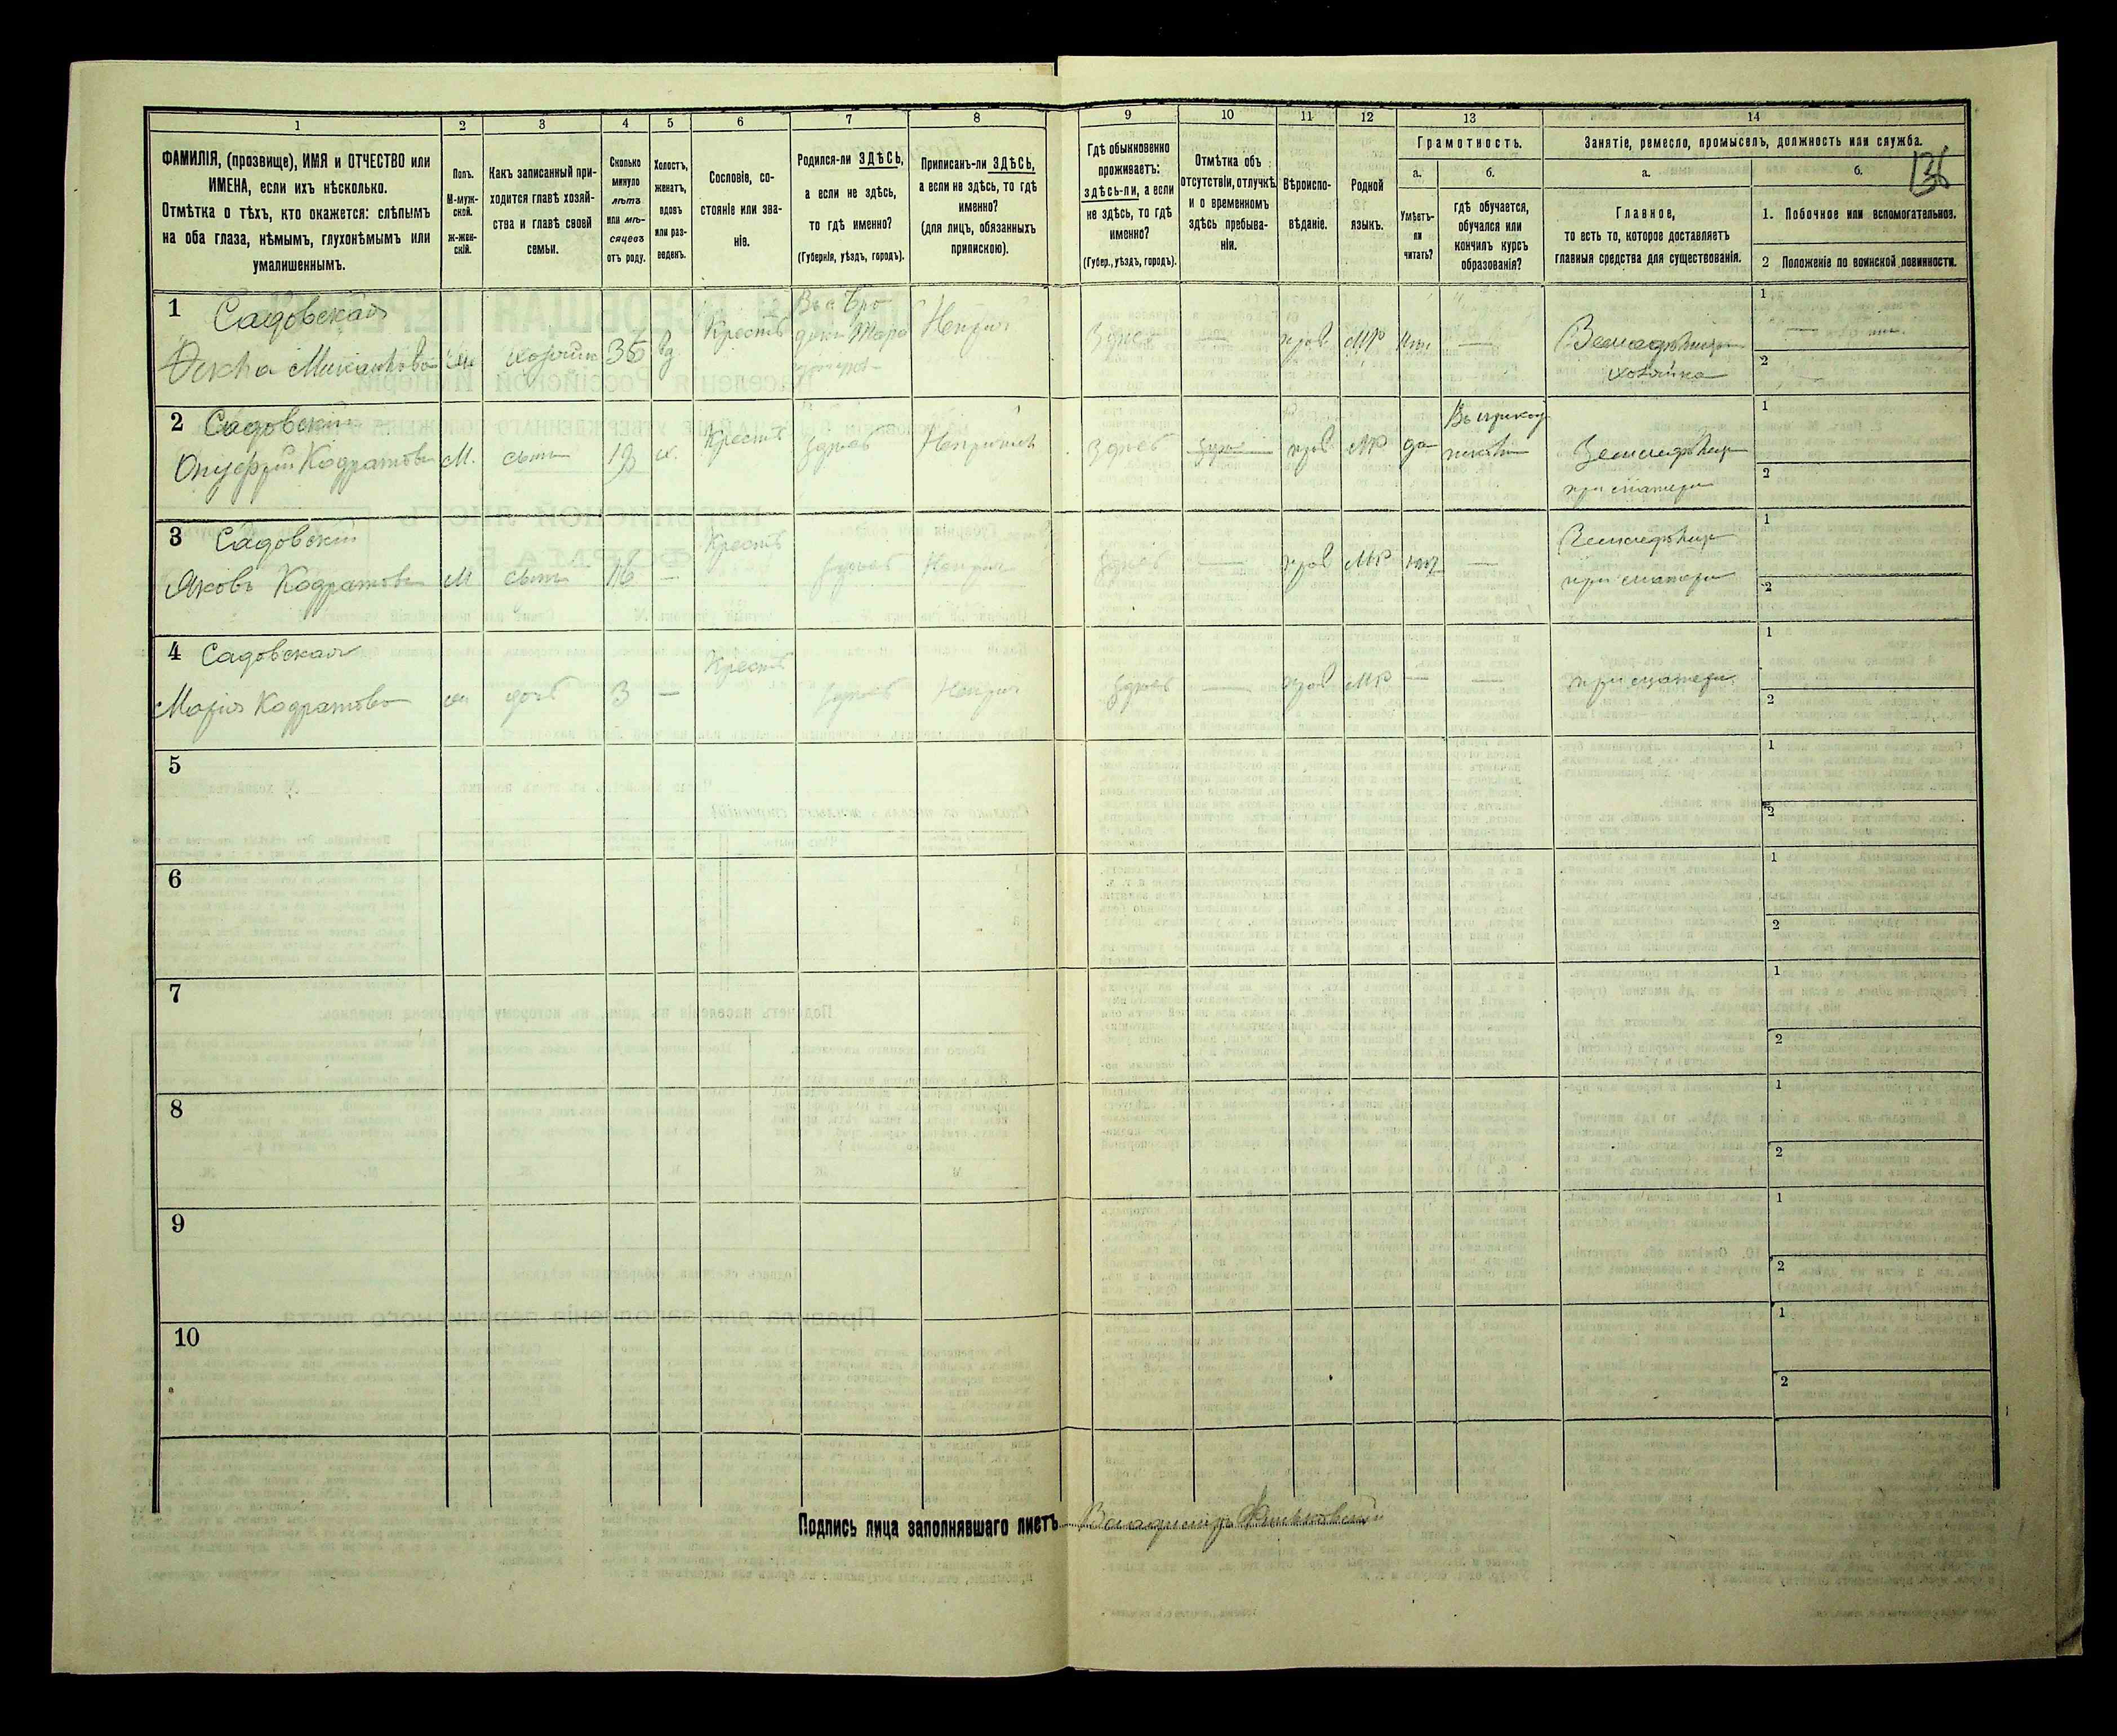 1 2 3 4 5 6 7 8 9 10 11 12 13 14
ФАМИЛІЯ, (прозвище), ИМЯ и ОТЧЕСТВО или
ИМЕНА, если ихъ нѣсколько.
Отмѣтка о тѣхъ, кто окажется: слѣпымъ
на оба глаза, нѣмымъ, глухонѣмымъ или
умалишеннымъ.
Полъ.
М-муж-
ской.
Ж-жен-
скій.
Какъ записанный при-
ходится главѣ хозяй-
ства и главѣ своей
семьи.
Сколько
минуло
лѣтъ
или мѣ-
сяцевъ
отъ роду.
Холостъ,
женатъ,
вдовъ
или раз-
веденъ.
Сословіе, со-
стояніе или зва-
ніе.
Родился-ли ЗДѢСЬ,
а если не здѣсь,
то гдѣ именно?
(Губернія, уѣздъ, городъ).
Приписанъ-ли ЗДѢСЬ,
а если не здѣсь, то гдѣ
именно?
(для лицъ, обязанныхъ
припискою).
Гдѣ обыкновенно
проживаетъ:
здѣсь-ли, а если
не здѣсь, то гдѣ
именно?
(Губер., уѣздъ, городъ).
Отмѣтка объ
отсутствіи, отлучкѣ
и о временномъ
здѣсь пребыва-
ніи.
Вѣроиспо-
вѣданіе.
Родной
языкъ.
Грамотность.
а.
Умѣетъ-
ли
читать?
б.
гдѣ обучается,
обучался или
кончилъ курсъ
образованія?
Занятіе, ремесло, промыселъ, должность или служба.
136
а.
Главное,
то есть то, которое доставляетъ
главныя средства для существованія.
б.
1. Побочное или вспомогательное.
2 Положеніе по воинской повинности.
1 Садовская
хозяйка 35 вд Крестъ
прав МР
Земледѣлецъ
хозяйка
1
2
2 Садовскій
Онуфрій Кодратовъ М. сынъ 19 х. Крестъ здѣсь здѣсь прав МР да
Земледѣлец
при матери
1
2
3 Садовскій
Яковъ Кодратовъ М сынъ 16 — Крестъ здѣсь здѣсь — прав МР —
Земледѣлец
при матери
1
2
4 Садовская
Марія Кодратова доч 3 — Крест здѣсь здѣсь — прав МР — —
при матери
1
2
5
1
2
6
1
2
7
1
2
8
1
2
9
1
2
10
1
2
Подпись лица заполнявшаго листъ Владиміръ